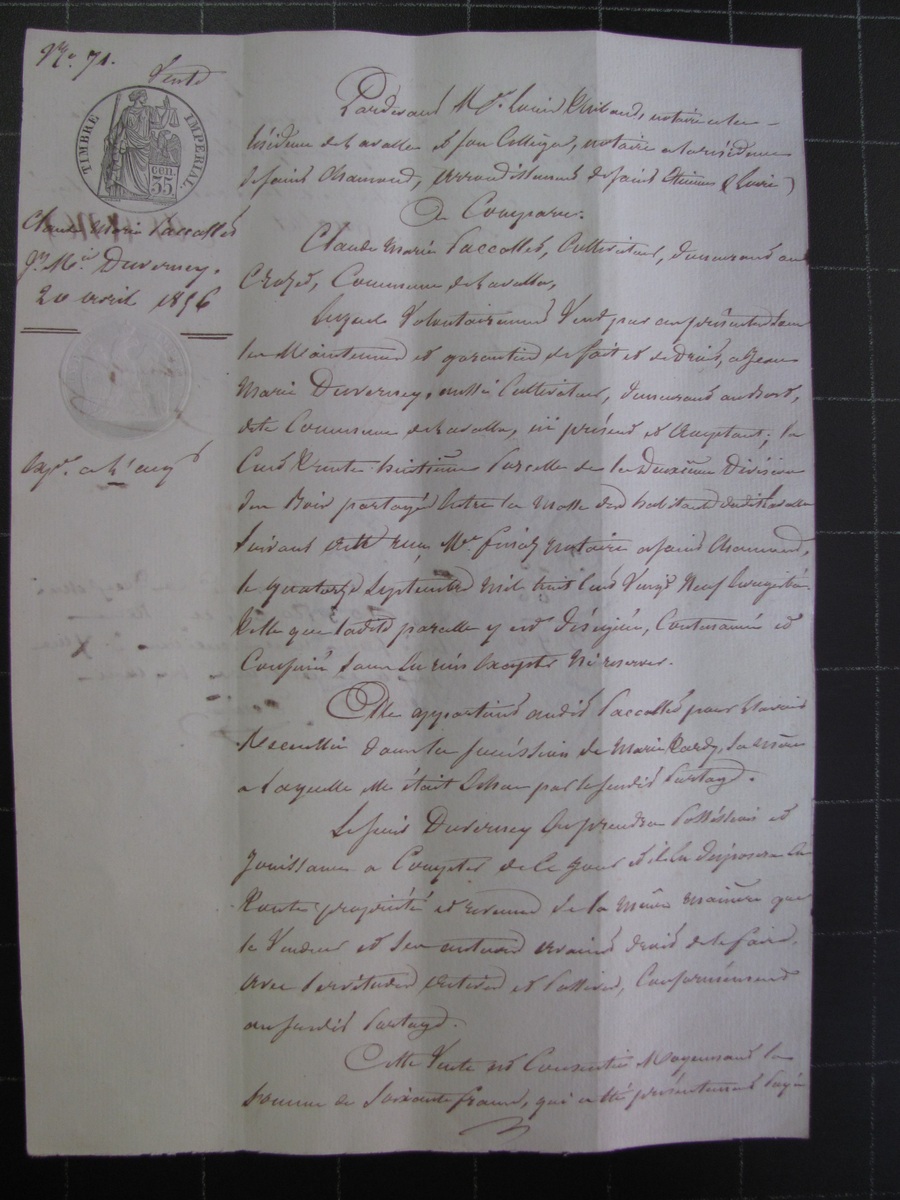 No. 71.
Vente
TIMBRE IMPERIAL
35 CEN.
Claude Marie Paccallet
Jn. Mie. Duverney.
20 avril 1856
Expn. a l'acqr
Pardevant Me. Louis Thibaud, notaire à la
résidence de Lavalla et son Collègue, notaire à la résidence
de Saint Chamond, arrondissement de Saint Etienne (Loire)
A Comparu.
Claude Marie Paccallet, Cultivateur, demeurant au
Crozet, Commune de Lavalla,
Lequel Volontairement Vend par ces présentes sous
les Maintenue et garantie de fait et de Droit, a Jean
Marie Duverney, aussi Cultivateur, demeurant au
dite Commune de Lavalla, ici présent et Acceptant, la
Cent Trente huitième Parcelle de la Deuxième Division
d'un Bois partagé Entre la Masse des habitants dudit Lavalla
Suivant acte reçu Me. Finaz Notaire a Saint Chamond,
le quatorze Septembre Mil huit Cent Vingt Neuf Enregistré.
Telle que ladite parcelle y est Désignée, Contenancée et
Confinée Sans En rien Excepter Ni réserver.
Elle appartient audit Paccallet pour l'avoir
Recueillie dans la Succession de Marie Tardy, Sa Mère
a Laquelle Elle était Echue par le Susdit Partage.
Le Sieur Duverney En prendra Possession et
Jouissance a Compter de Ce Jour et il En disposera En
Toute propriété et revenu de la Même Manière que
le Vendeur et Ses auteurs avaient droit de le faire,
avec Servitudes actives et Passives, Conformément
au Susdit Partage.
Cette Vente est Consentie Moyennant la
Somme de Soixante francs, qui a été présentement Payée